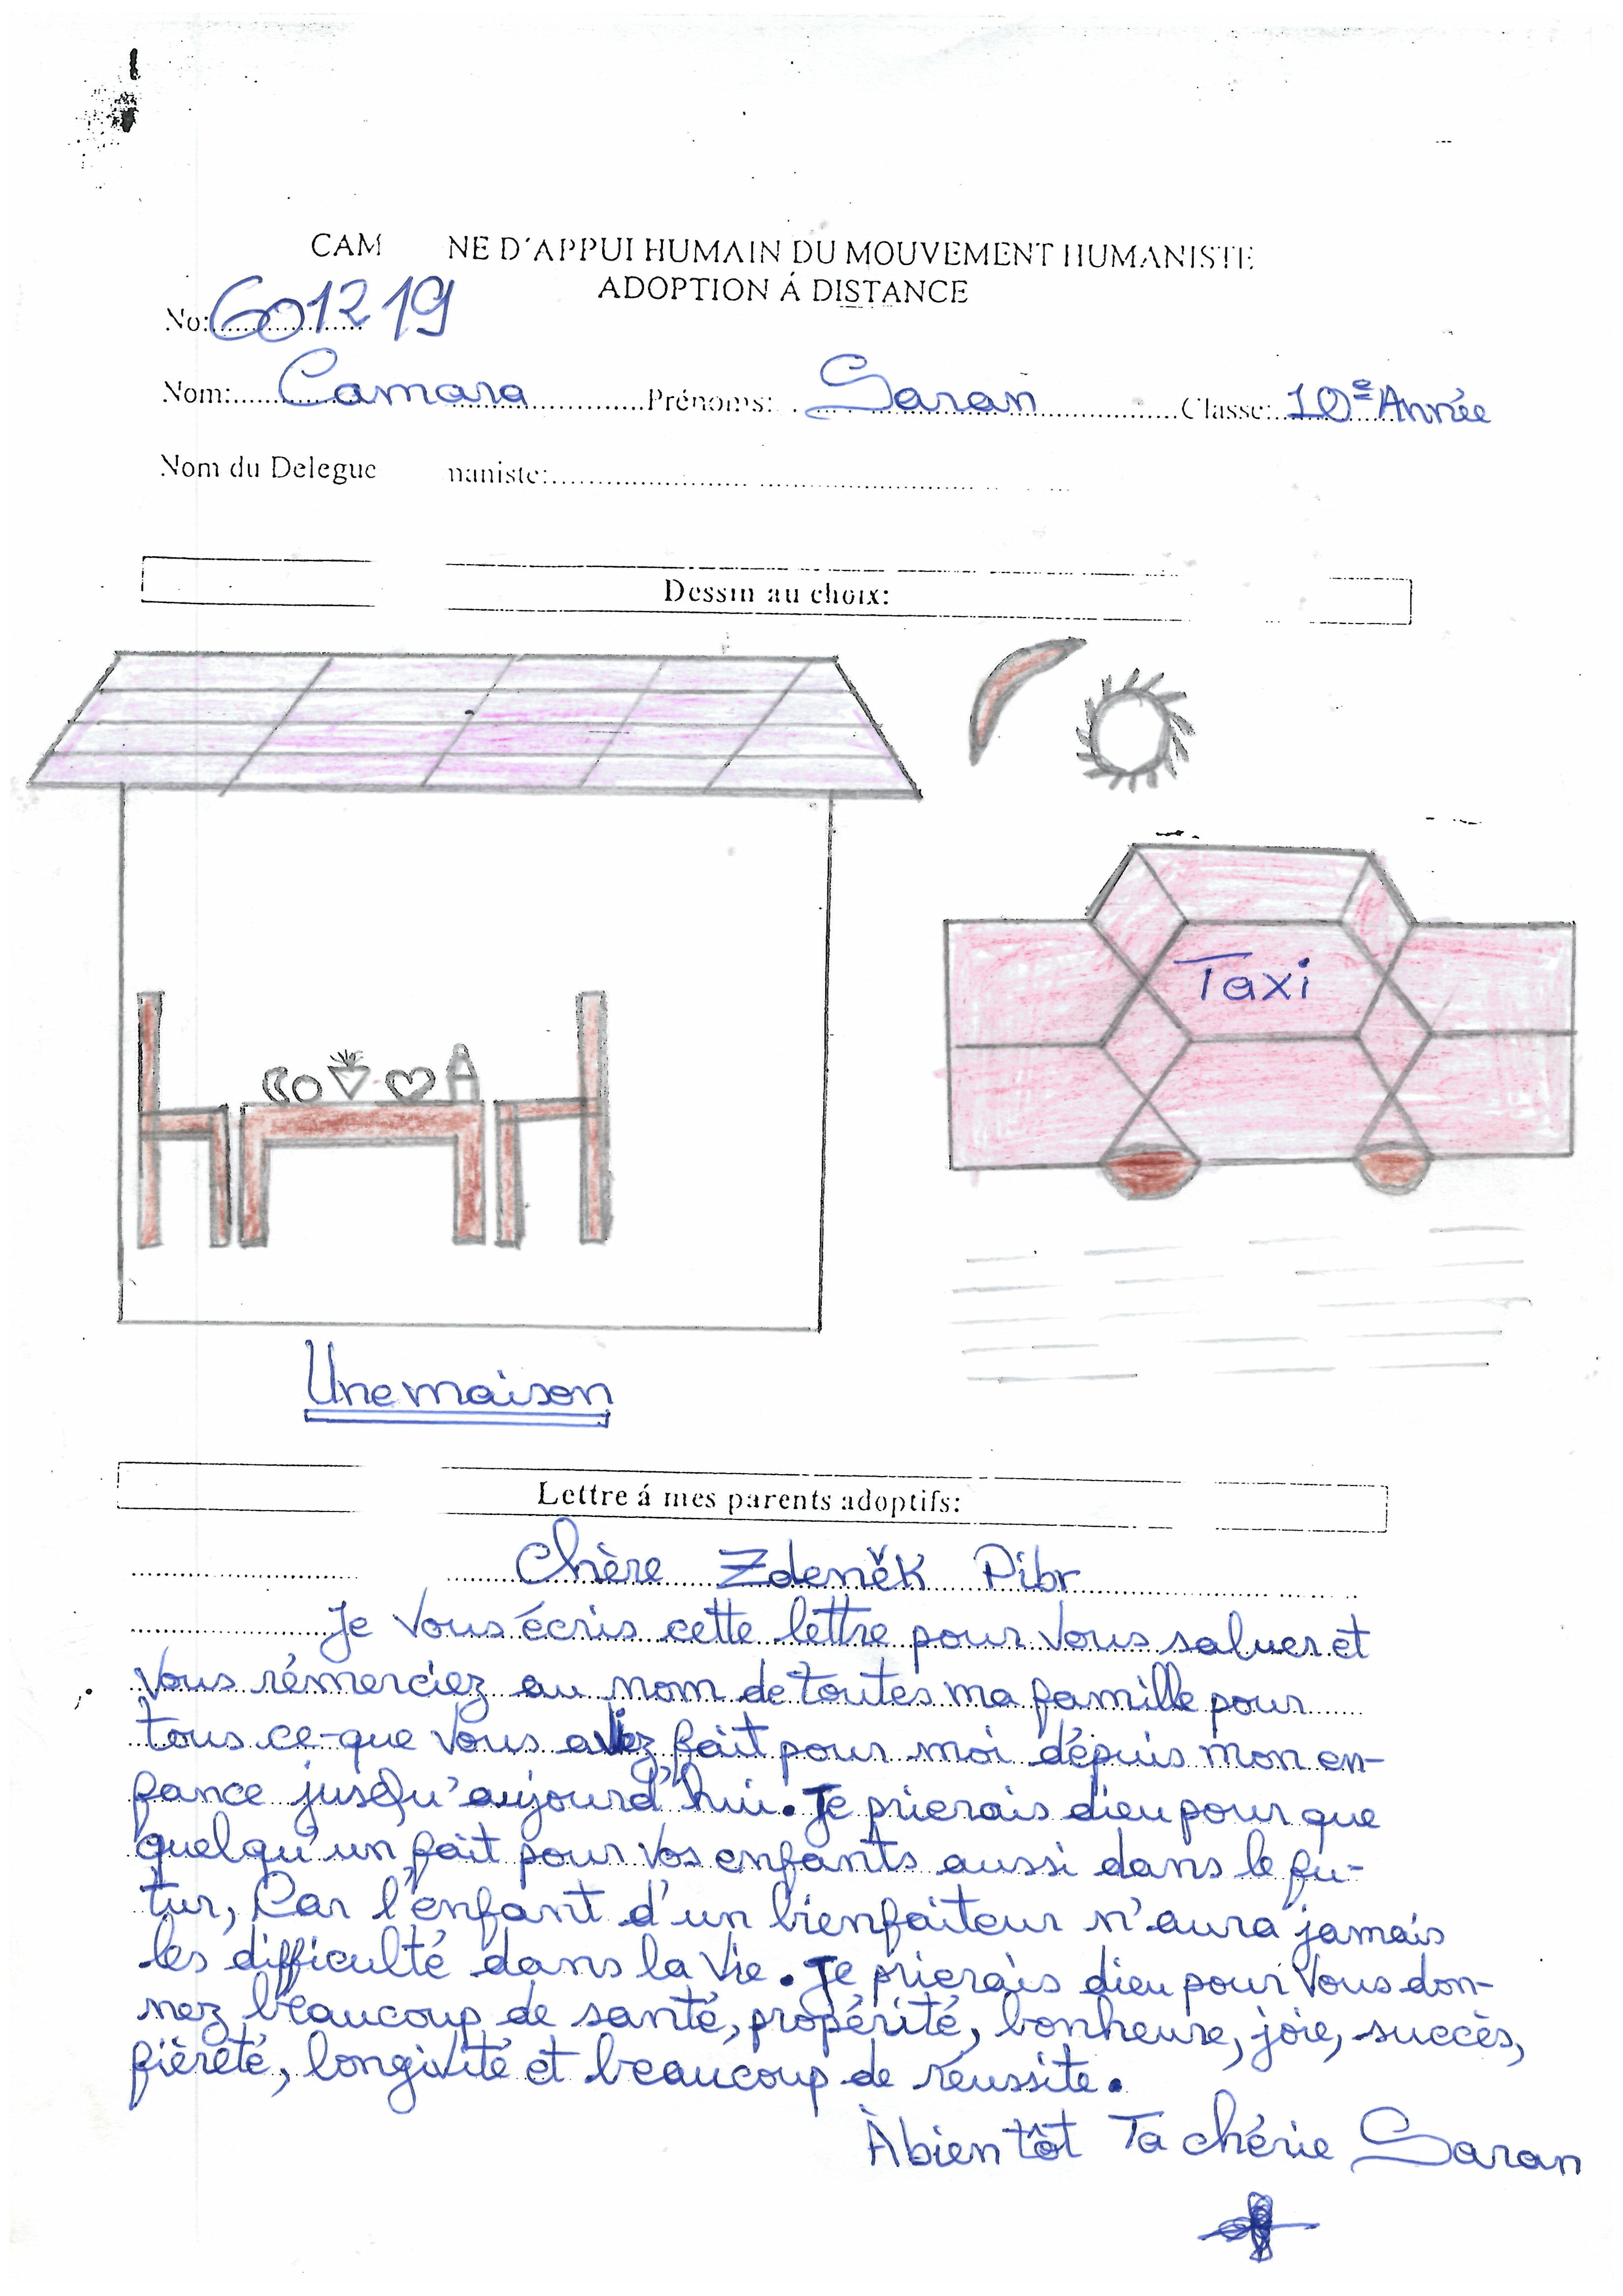 CAM NE D'APPUI HUMAIN DU MOUVEMENT HUMANISTE
ADOPTION Á DISTANCE
No: 601219
Nom: Camara Prénoms: Saran Classe: 10e Année
Nom du Delegue maniste:
Dessin au choix:
Taxi
Une maison
Lettre á mes parents adoptifs:
Chère Zdeněk Pibr
Je vous écris cette lettre pour vous saluer et
vous rémerciez au nom de toutes ma famille pour
tous ce-que vous avez fait pour moi dépuis mon en-
fance jusqu'aujourd'hui. Je prierais dieu pour que
quelqu'un fait pour vos enfants aussi dans le fu-
tur, Car l'enfant d'un bienfaiteur n'aura jamais
les difficulté dans la vie. Je prierais dieu pour vous don-
nez beaucoup de santé, propérité, bonheure, joie, succès,
fièrété, longivité et beaucoup de réussite.
À bientôt Ta chérie Saran